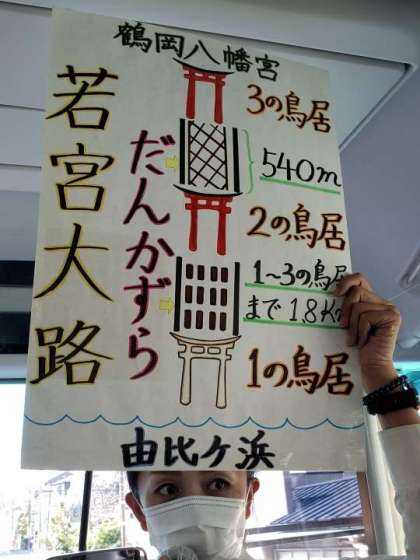 鶴岡八幡宮
若宮大路
だんかずら
3の鳥居
540m
2の鳥居
1~3の鳥居
まで 1.8Km
1の鳥居
由比ケ浜